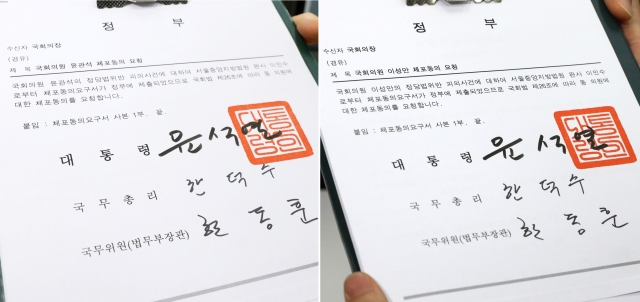 정 부
수신자 국회의장
(경유)
제 목 국회의원 윤관석 체포동의 요청
국회의원 윤관석의 정당법위반 피의사건에 대하여 서울중앙지방법원 판사 이민수
로부터 체포동의요구서가 정부에 제출되었으므로 국회법 제26조에 따라 동 의원에
대한 체포동의를 요청합니다.
붙임 : 체포동의요구서 사본 1부. 끝.
대 통 령 윤석열
국 무 총 리 한덕수
국무위원(법무부장관) 한동훈
정 부
수신자 국회의장
(경유)
제 목 국회의원 이성만 체포동의 요청
국회의원 이성만의 정당법위반 피의사건에 대하여 서울중앙지방법원 판사 이민수
로부터 체포동의요구서가 정부에 제출되었으므로 국회법 제26조에 따라 동 의원에
대한 체포동의를 요청합니다.
붙임 : 체포동의요구서 사본 1부. 끝.
대 통 령 윤석열
국 무 총 리 한덕수
국무위원(법무부장관) 한동훈